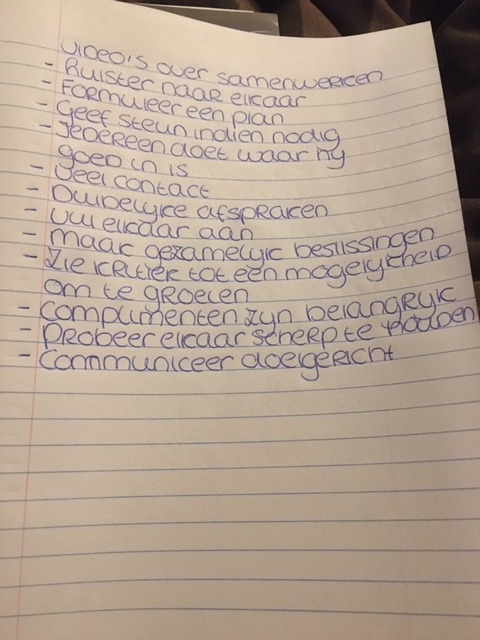 video's over samenwerken
- Luister naar elkaar
- Formuleer een plan
- Geef steun indien nodig
- Iedereen doet waar hij
goed in is
- Veel contact
- Duidelijke afspraken
- Vul elkaar aan
- Maak gezamelijk beslissingen
- Zie kritiek tot een mogelijkheid
om te groeien
- Complimenten zijn belangrijk
- Probeer elkaar scherp te houden
- Communiceer doelgericht